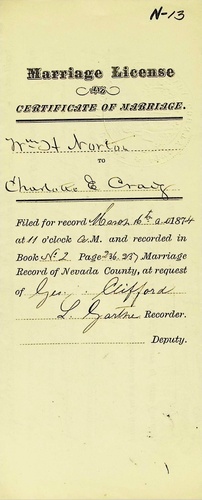 N-13
Marriage License
AND
CERTIFICATE OF MARRIAGE.
Wm H Norton
TO
Charlotte E Craig
Filed for record March 16th A.D. 1874
at 11 o'clock A.M. and recorded in
Book No 2 Page 236. 237 Marriage
Record of Nevada County, at request
of Geo. Clifford
L. Garthe Recorder.
Deputy.